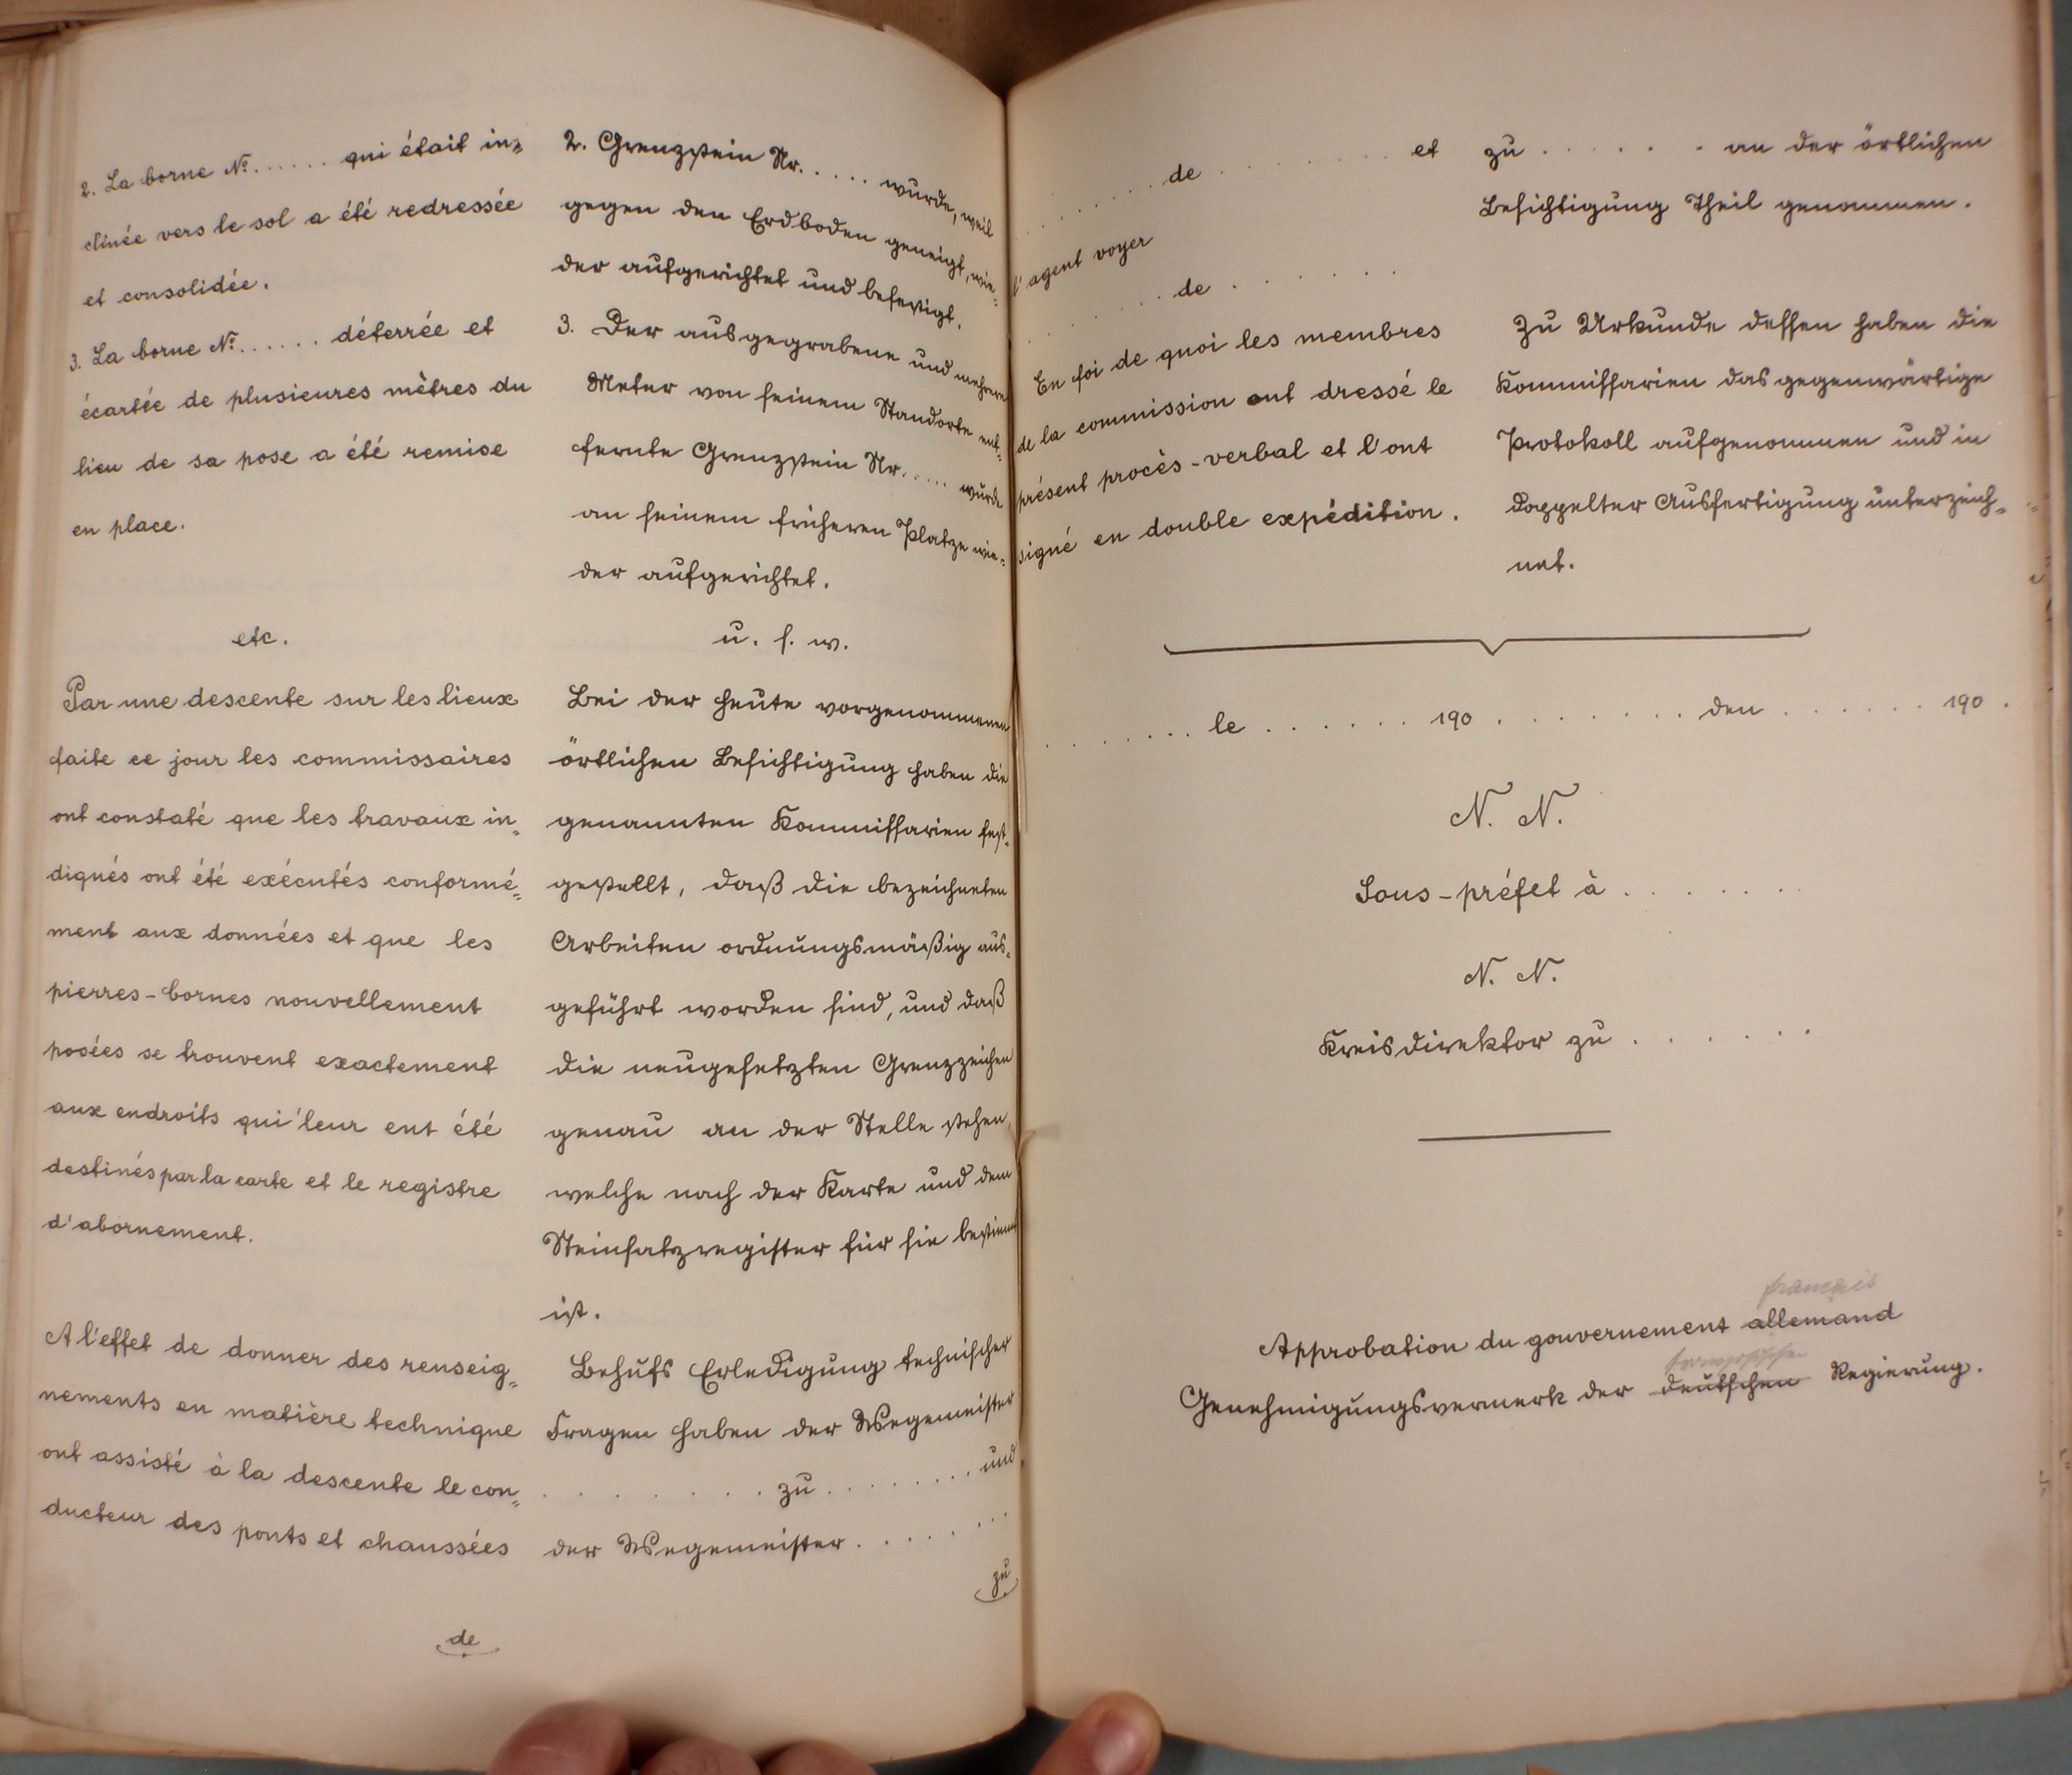 2. La borne № ...... qui était in=
clinée vers le sol a été redressée
et consolidée.
3. La borne № ...... déterrée et
écartée de plusieures mètres du
lieu de sa pose a été remise
en place.
etc.
Par une descente sur les lieux
faite ce jour les commissaires
ont constaté que les travaux in=
diqués ont été exécutés conformé=
ment aux données et que les
pierres-bornes nouvellement
posées se trouvent exactement
aux endroits qui'leur ent été
destinés par la carte et le registre
d'abornement.
A l'effet de donner des renseig=
nements en matière technique
ont assisté à la descente le con=
ducteur des ponts et chaussées
de
2. Grenzstein Nr. ..... wurde, weil
gegen den Erdboden geneigt, wie=
der aufgerichtet und befestigt.
3. Der ausgegrabene und mehrere
Meter von seinem Standorte ent=
fernte Grenzstein Nr. ..... wurde
an seinem früheren Platze wie=
der aufgerichtet.
u. s. w.
Bei der heute vorgenommenen
örtlichen Besichtigung haben die
genannten Kommissarien fest=
gestellt, daß die bezeichneten
Arbeiten ordnungsmäßig aus=
geführt worden sind, und daß
die neugesetzten Grenzzeichen
genau an der Stelle stehen,
welche nach der Karte und dem
Steinsatzregister für sie bestimmt
ist.
Behufs Erledigung technischer
Fragen haben der Wegemeister
........ zu ........ und
der Wegemeister ........
zu
...... de ........ et
l'agent voyer
...... de .......
En foi de quoi les membres
de la commission ont dressé le
présent procès-verbal et l'ont
signé en double expédition.
zu ...... an der örtlichen
Besichtigung Theil genommen.
Zu Urkunde dessen haben die
Kommissarien das gegenwärtige
Protokoll aufgenommen und in
doppelter Ausfertigung unterzeich=
net.
........ le ...... 190 ........ den ...... 190 .
N. N.
Sous-préfet à .......
N. N.
Kreisdirektor zu ......
francais
Approbation du gouvernement allemand
französischen
Genehmigungsvermerk der deutschen Regierung.